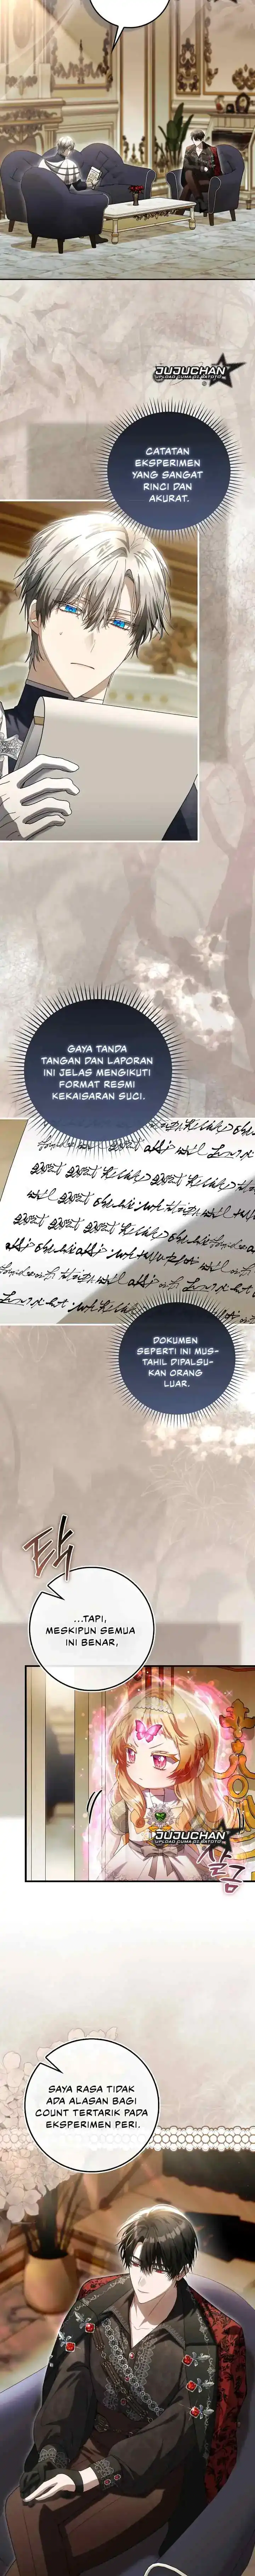 JUJUCHAN
UPLOAD CUMA DI BATOTO
CATATAN
EKSPERIMEN
YANG SANGAT
RINCI DAN
AKURAT.
GAYA TANDA
TANGAN DAN LAPORAN
INI JELAS MENGIKUTI
FORMAT RESMI
KEKAISARAN SUCI.
DOKUMEN
SEPERTI INI MUS-
TAHIL DIPALSU-
KAN ORANG
LUAR.
탁
...TAPI,
MESKIPUN SEMUA
INI BENAR,
JUJUCHAN
UPLOAD CUMA DI BATOTO
살금
SAYA RASA TIDAK
ADA ALASAN BAGI
COUNT TERTARIK PADA
EKSPERIMEN PERI.